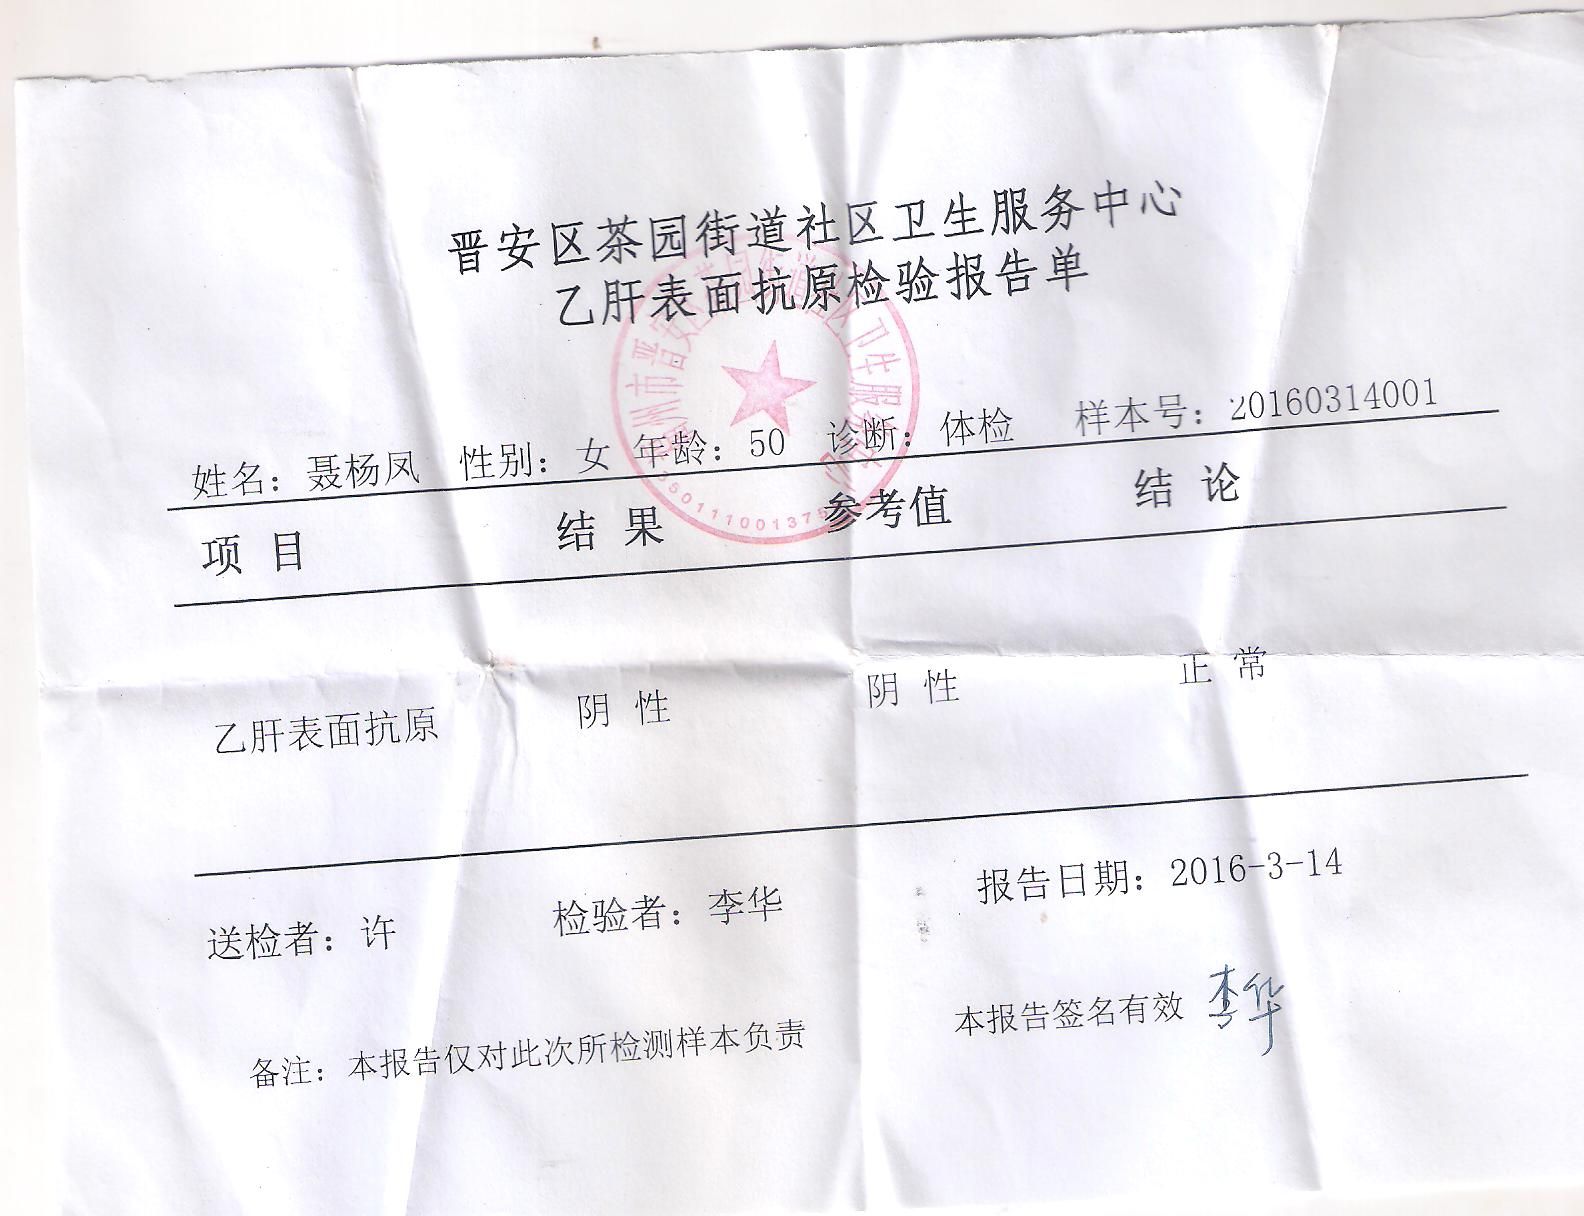 晋安区茶园街道社区卫生服务中心
乙肝表面抗原检验报告单
州市晋安区茶园街道社区卫生服务中心
姓名：聂杨凤 性别：女 年龄：50 诊断：体检 样本号：20160314001
项 目 结 果 参考值 结 论
乙肝表面抗原 阴 性 阴 性 正 常
送检者：许 检验者：李华 报告日期：2016-3-14
备注：本报告仅对此次所检测样本负责 本报告签名有效 李华